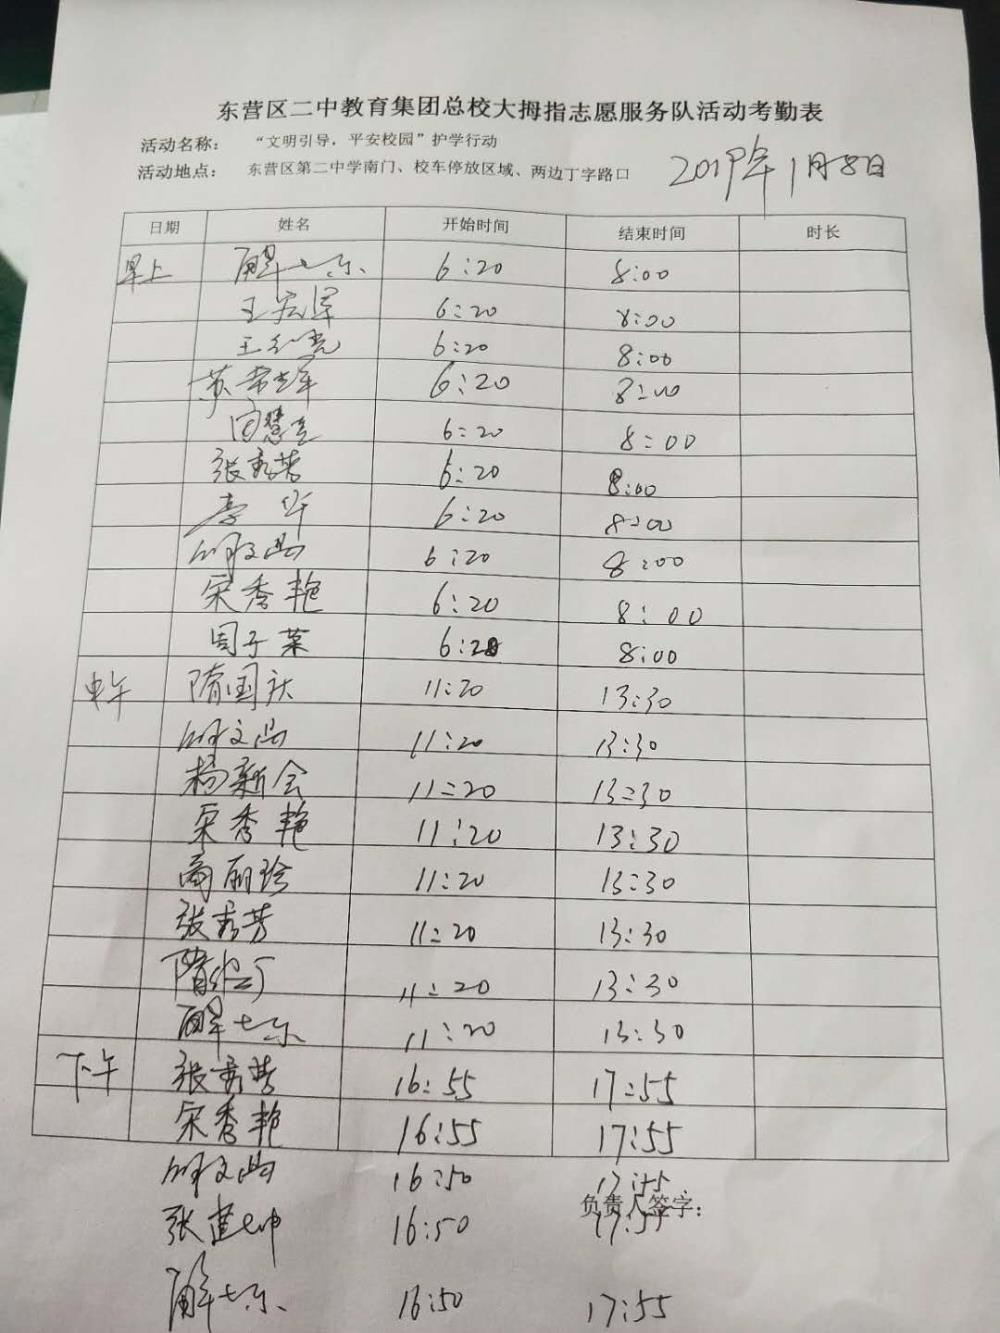 东营区二中教育集团总校大拇指志愿服务队活动考勤表
活动名称： “文明引导，平安校园”护学行动
活动地点： 东营区第二中学南门、校车停放区域、两边丁字路口 2019年1月8日
日期 姓名 开始时间 结束时间 时长
早上 解七东 6:20 8:00
王宏军 6:20 8:00
王红亮 6:20 8:00
苏常军 6:20 8:00
6:20 8:00
张秀芳 6:20 8:00
李华 6:20 8:00
6:20 8:00
宋秀艳 6:20 8:00
周子菜 6:20 8:00
中午 隋国庆 11:20 13:30
11:20 13:30
杨新会 11:20 13:30
宋秀艳 11:20 13:30
商丽珍 11:20 13:30
张秀芳 11:20 13:30
11:20 13:30
解七东 11:20 13:30
下午 张秀芳 16:55 17:55
宋秀艳 16:55 17:55
16:50 17:55
负责人签字：
张建 16:50 17:55
解七东 16:50 17:55